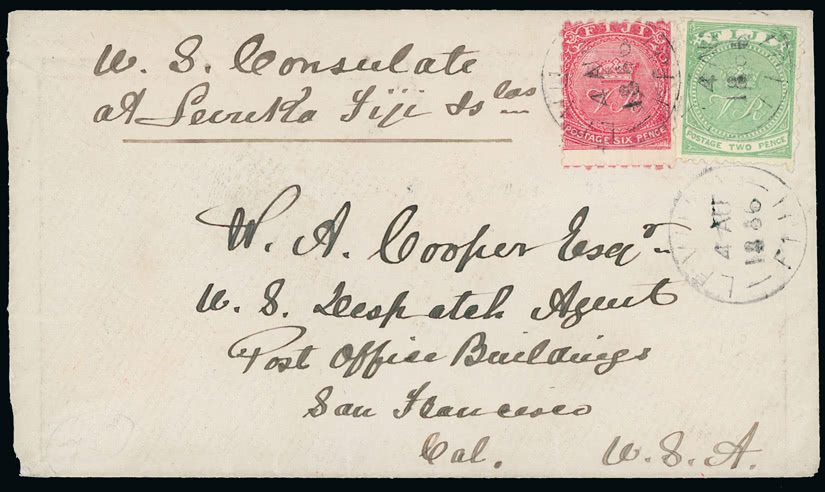 U. S. Consulate
at Levuka Fiji Is las
FIJI
POSTAGE SIX PENCE
FIJI
POSTAGE TWO PENCE
4 AU
1886
W. A. Cooper Esqr
U. S. Despatch Agent
Post Office Buildings
San Francisco
Cal. U. S. A.